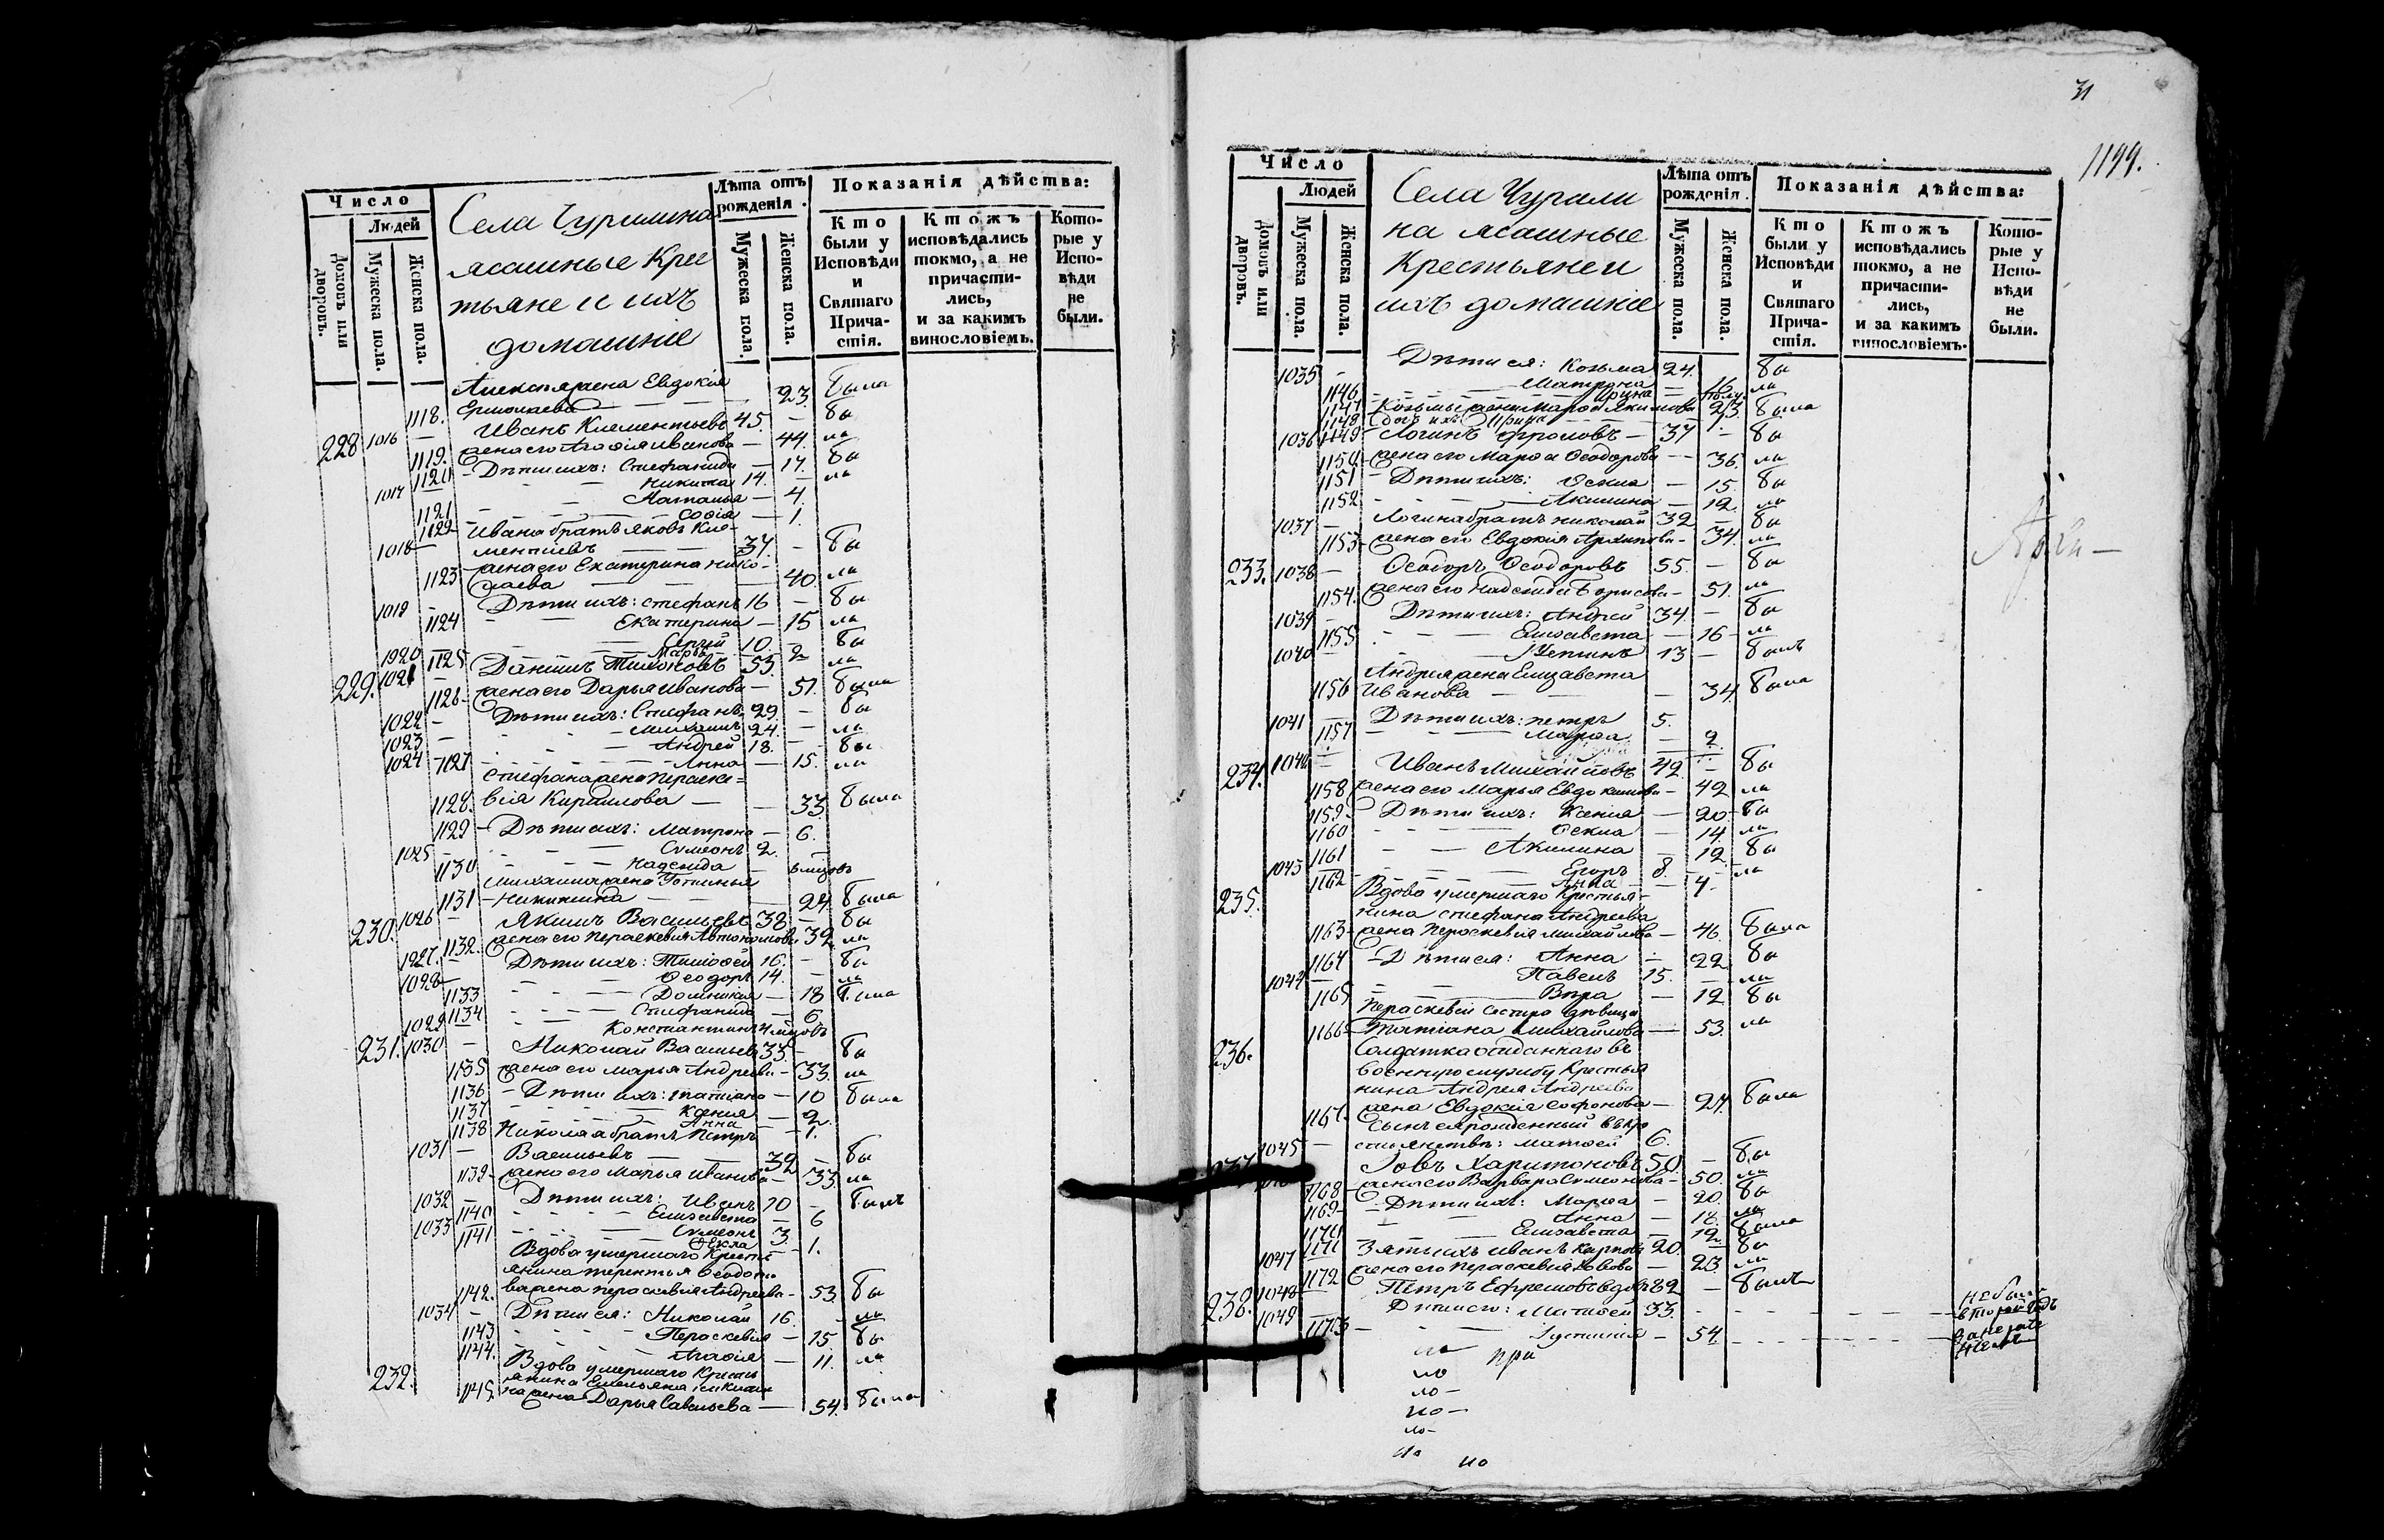 Число
Людей
Домовъ или дворовъ.
Мужеска пола.
Женска пола.
Села Чуралина
ясашные Крес
тьяне и ихъ
домашніе
Лѣта отъ рожденія.
Мужеска пола.
Женска пола.
Показанія дѣйства:
Кто были у Исповѣди и Святаго Причастія.
Ктожъ исповѣдались токмо, а не причастились, и за какимъ винословіемъ.
Которые у Исповѣди не были.
Алексѣя жена Евдокія
1118. Ермолаева — 23. была
228 1016 — Иванъ Клементьевъ 45. — бы
1119. жена его Агафія Иванова — 44. ла
1120 — Дѣти ихъ: Стефанида — 17. бы
1017 — Никита 14. — ла
1121 — Наталья — 4.
1122 — Софія — 1.
Ивана братъ Яковъ Кле-
1018 — ментьевъ — 37. — бы
жена его Екатерина Нико-
1123 лаева — 40. ла
1019 — Дѣти ихъ: Стефанъ 16 — бы
1124 — Екатерина — 15 ла
1020 — Сергѣй 10. — бы
1125 — Марья — 2 ла
229. 1021 — Даніилъ Тихоновъ 53.
1126 — жена его Дарья Иванова — 51. была
1022 — Дѣти ихъ: Стефанъ 29. — бы
1023 — Михаилъ 24. — ла
1024 — Андрей 18. — бы
1127 — Анна — 15. ла
Стефана жена Параске-
1128. вія Кирилова — 33. была
1129 — Дѣти ихъ: Матрона — 6.
1025 — Сѵмеонъ 2.
1130 — Надежда — 6 мцовъ
Михаила жена Устинья
1131 — Никитина — 24. была
230. 1026 — Якимъ Васильевъ 38 — бы
1132. жена его Параскевія Автономова 39 ла
1027. — Дѣти ихъ: Тимоѳей 16. — бы
1028 — Ѳеодоръ 14. — ла
1133 — Домникія — 18 была
1134 — Стефанида — 6
1029 — Константинъ 4 мцовъ
231. 1030 — Николай Васильевъ 33. — бы
1135 жена его Марья Андреева — 33. ла
1136 — Дѣти ихъ: Татіана — 10 была
1137 — Ксенія — 2.
1138 — Анна — 1.
Николая братъ Петръ
1031 — Васильевъ — 32 — бы
1139 — жена его Марья Иванова — 33. ла
1032 — Дѣти ихъ: Иванъ 10 — былъ
1140 — Елизавета — 6
1033 — Сѵмеонъ 3.
1141 — Ѳекла — 1.
Вдова умершаго Кресть
янина Терентья Ѳедото
1142. ва жена Параскевія Андреева — 53. бы
1034 — Дѣти ея: Николай 16. — ла
1143 — Параскевія — 15 бы
1144. — Агафія — 11. ла
232. Вдова умершаго Кресть
янина Емельяна Никити
1145. на жена Дарья Савельева — 54. была
31
1199.
Число
Людей
Домовъ или дворовъ.
Мужеска пола.
Женска пола.
Села Чурали
на ясашные
Крестьяне и
ихъ домашніе
Лѣта отъ рожденія.
Мужеска пола.
Женска пола.
Показанія дѣйства:
Кто были у Исповѣди и Святаго Причастія.
Ктожъ исповѣдались токмо, а не причастились, и за какимъ винословіемъ.
Которые у Исповѣди не были.
1035 — Дѣти ея: Козьма 24. — бы
1146 — Матрона — 16 ла
1147 — Ирина
1148 Козьмы жена Марѳа Якимова 23. была
1149 дочь ихъ Ирина
1036 — Логинъ Фроловъ — 37 — бы
1150. жена его Марѳа Ѳеодорова — 36. ла
1151 — Дѣти ихъ: Ѳекла — 15. бы
1152 — Акилина — 12. ла
1037 — Логина братъ Николай 32 — бы
1153 — жена его Евдокія Архипова — 34. ла
233. 1038 — Ѳеодоръ Ѳеодоровъ 55. — бы
1154. жена его Надежда Борисова — 51. ла
1039 — Дѣти ихъ: Андрей 34. — бы
1155 — Елисавета — 16 ла
1040 — 13 — былъ
Андрея жена Елизавета
1156 Иванова — 34. была
1041 — Дѣти ихъ: Петръ 5.
1157 — Марѳа — 2.
234. 1042 — Иванъ Михайловъ 42 — бы
1158 жена его Марья Евдокимова — 42 ла
1159 — Дѣти ихъ: Ксенія — 20 бы
1160 — Ѳекла — 14. ла
1161 — Акилина — 12. бы
1043 — Егоръ 8. — ла
1162 — Анна — 4.
235. Вдова умершаго Крестья-
нина Стефана Андреева
1163 — жена Параскевія Михайлова — 46. была
1164 — Дѣти ея: Анна — 22. бы
1044 — Павелъ 15. — ла
1165 — Вѣра — 12 бы
Параскевіи сестра дѣвица
1166 — Татіана Михайлова — 53. ла
236. Солдатка отданнаго въ
военную службу Крестья
нина Андрея Андреева
1167. жена Евдокія Софонова — 27. была
Сынъ ея рожденный въ кре
1045 — стьянствѣ: Матѳей 6.
Іовъ Харитоновъ 50. — бы
1168 — жена его Варвара Сѵмеонова — 50. ла
1169 — Дѣти ихъ: Марѳа — 20 бы
1170 — Анна — 18. ла
1171 — Елизавета — 12 была
1047 — Зять ихъ Иванъ Карповъ 20. — бы
1172 жена его Параскевія Іовова — 23. ла
238. 1048 — Петръ Ефремовъ вдовъ 82 — былъ
1049 — Дѣти его: Матѳей 33. — не были
1173 — Іустинія — 54.
при
ло
ло —
но —
ло —
но
но